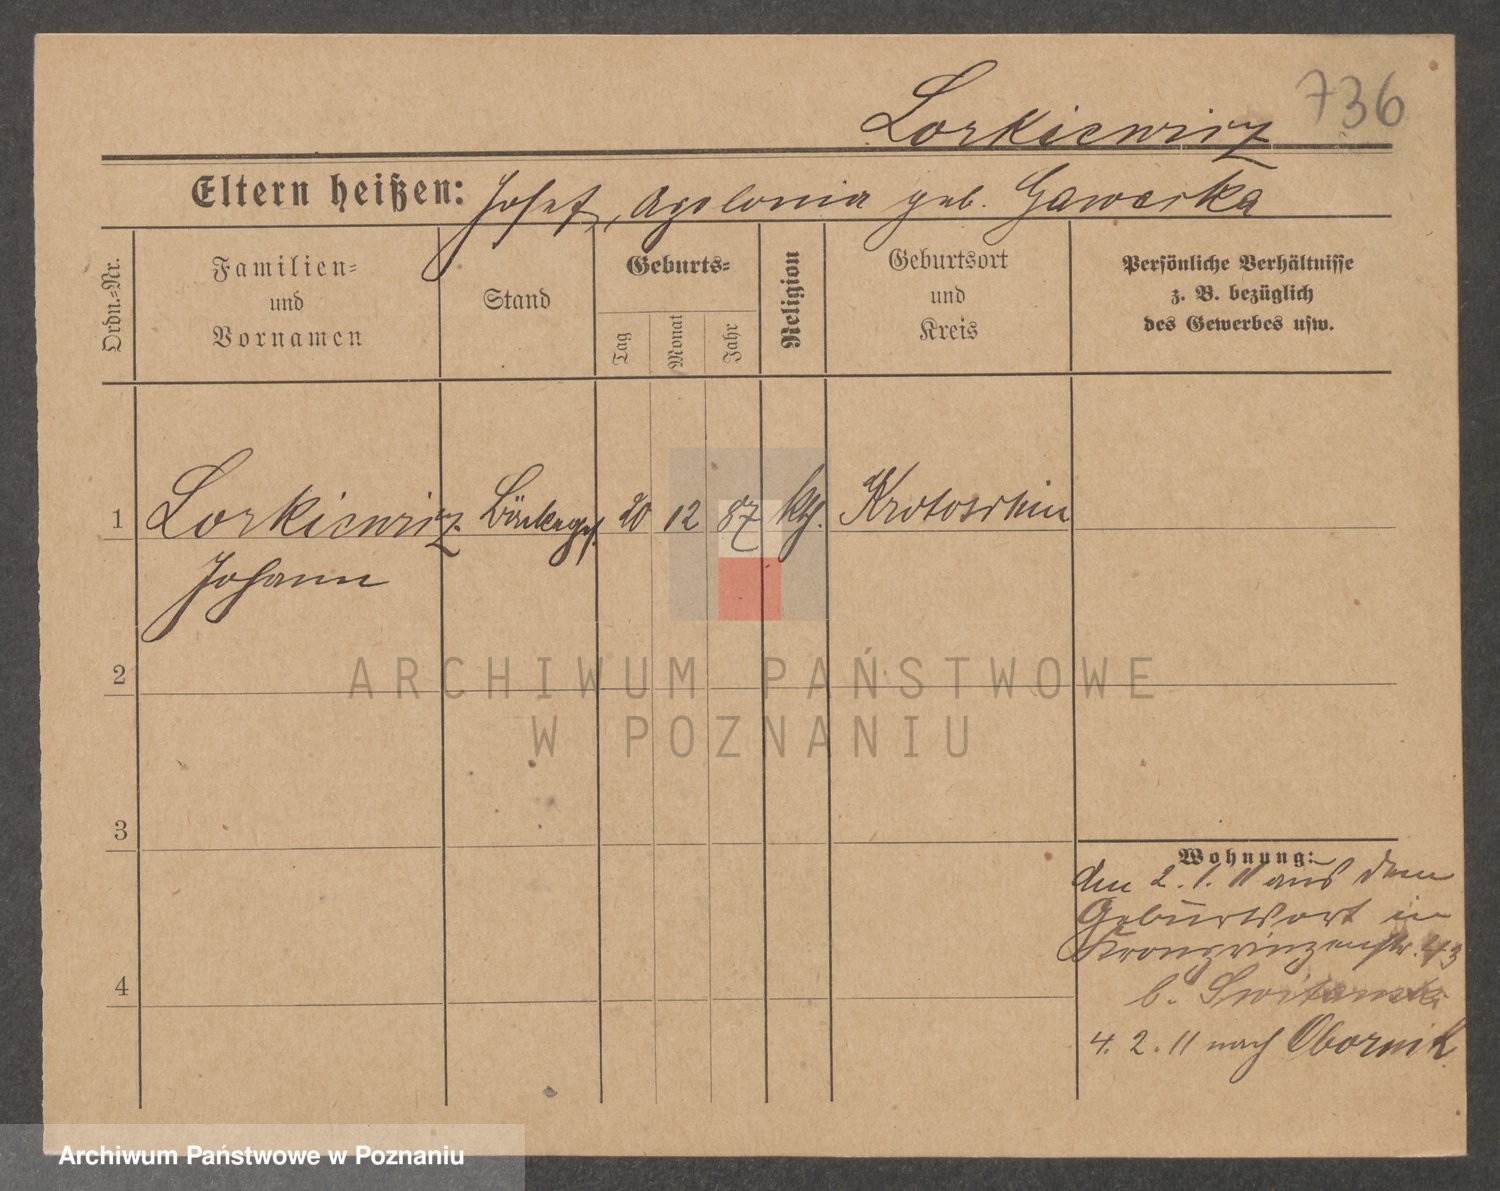 Lorkiewicz 736
Eltern heißen: Josef, Apolonia geb. Gawerska
Ordn.=Nr.
Familien=
und
Vornamen
Stand
Geburts=
Tag
Monat
Jahr
Religion
Geburtsort
und
Kreis
Persönliche Verhältnisse
z. B. bezüglich
des Gewerbes usw.
1 Lorkiewicz Bäckerges. 20 12 87 kth. Krotoschin
Johann
2
3
4
Wohnung:
den 2. 1. 11 aus dem
Geburtsort in
Kronprinzenstr. 43
b.
4. 2. 11 nach Obornik
ARCHIWUM PAŃSTWOWE
W POZNANIU
Archiwum Państwowe w Poznaniu